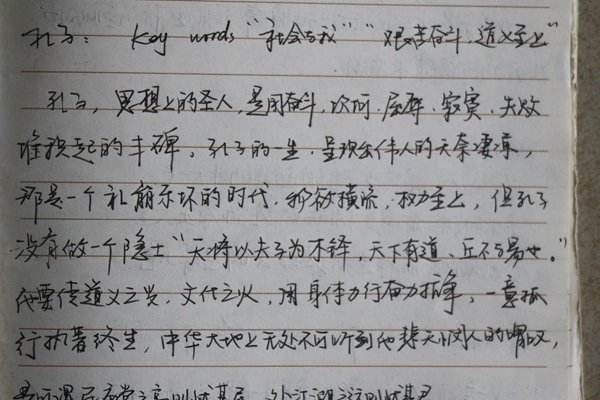 孔子： Key words "社会与我" "艰苦奋斗，道义至上"
孔子，思想上的圣人，是用奋斗、坎坷、屈辱、寂寞、失败
堆积起的丰碑，孔子的一生，呈现出伟人的无奈凄凉，
那是一个礼崩乐坏的时代，物欲横流，权力至上，但孔子
没有做一个隐士"天将以夫子为木铎，天下有道，丘不与易也。"
他要传道义之光，文化之火，用身体力行奋力抗争，一意孤
行执着终生，中华大地上无处不可听到他悲天悯人的喟叹，